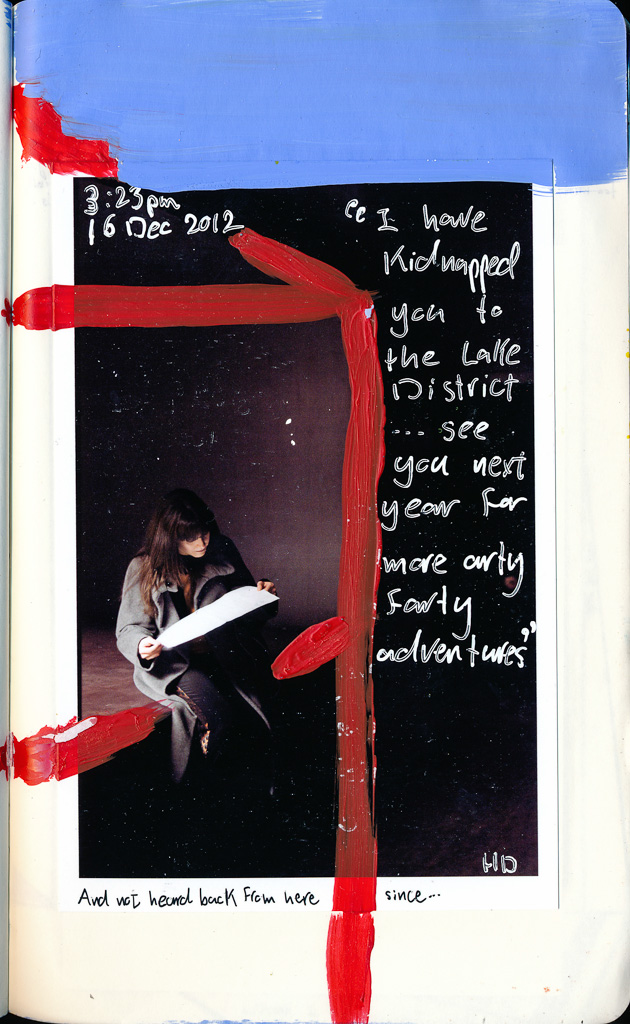 3:23pm
16 Dec 2012
"I have
Kidnapped
you to
the Lake
District
... see
you next
year for
more arty
farty
adventures"
HD
And not heard back from here since...